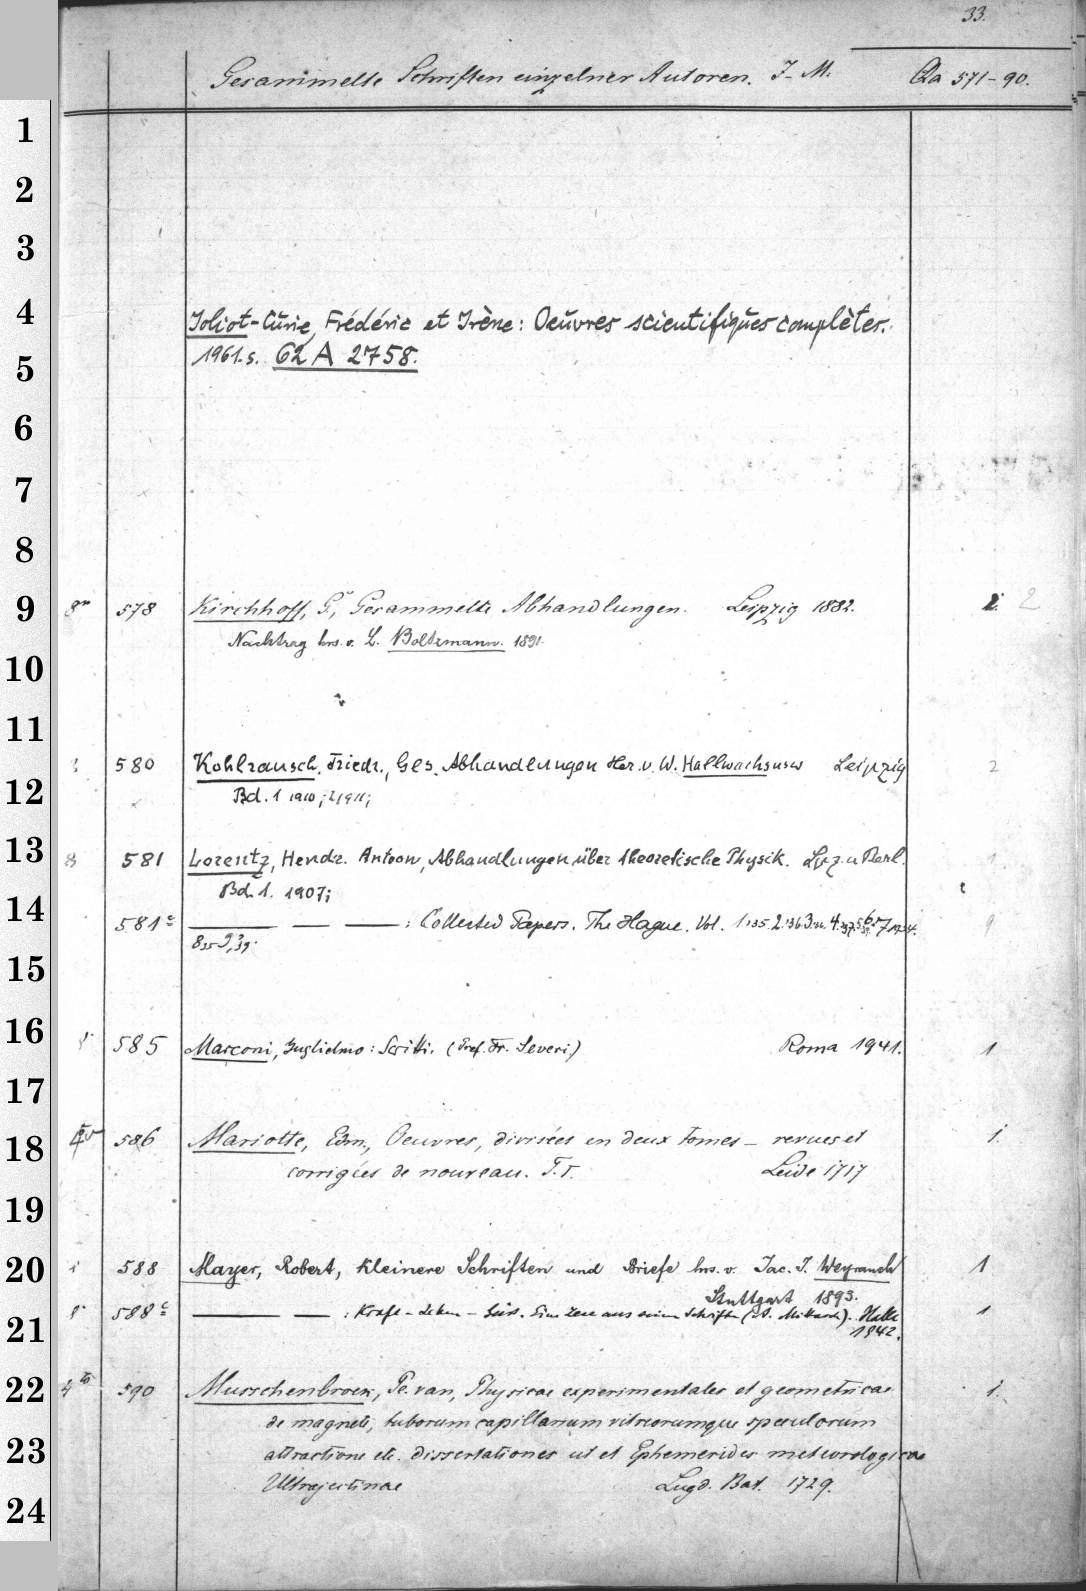 33.
Gesammelte Schriften einzelner Autoren. J-M. Qa 571-90.
1
2
3
4 Joliot-Curie, Frédéric et Irène: Oeuvres scientifiques complètes.
5 1961. s. 62 A 2758.
6
7
8
9 8° 578 Kirchhoff, G., Gesammelte Abhandlungen. Leipzig 1882. 2
10 Nachtrag hrs. v. L. Boltzmann. 1891.
11
580 Kohlrausch, Friedr., Ges. Abhandlungen Her. v. W. Hallwachs usw Leipzig 2
12 Bd. 1 1910; 2 1911;
13 8 581 Lorentz, Hendr. Antoon, Abhandlungen über theoretische Physik. Lpz. u Berl.
Bd. 1. 1907;
14 581c — — : Collected Papers. The Hague. Vol. 1.35 2.36 9
8.35 9,39.
15
16 585 Marconi, Guglielmo: Scritti. (Pref. Fr. Severi) Roma 1941. 1
17
18 4to 586 Mariotte, Edm., Oeuvres, divisées en deux tomes – revues et 1.
corrigées de nouveau. T. I. Leide 1717
19
20 588 Mayer, Robert, Kleinere Schriften und Briefe hrs. v. Jac. J. Weyrauch 1
Stuttgart 1893.
21 588c — — : Kraft - Leben - Geist. Eine Lese aus seinen Schriften Halle 1
1942.
22 4to 590 Musschenbroek, Pe. van, Physicae experimentales et geometricae 1.
de magnete, tuborum capillarium vitreorumque speculorum
23 attractione etc. dissertationes ut et Ephemerides meteorologicae
24 Ultrajectinae Lugd. Bat. 1729.